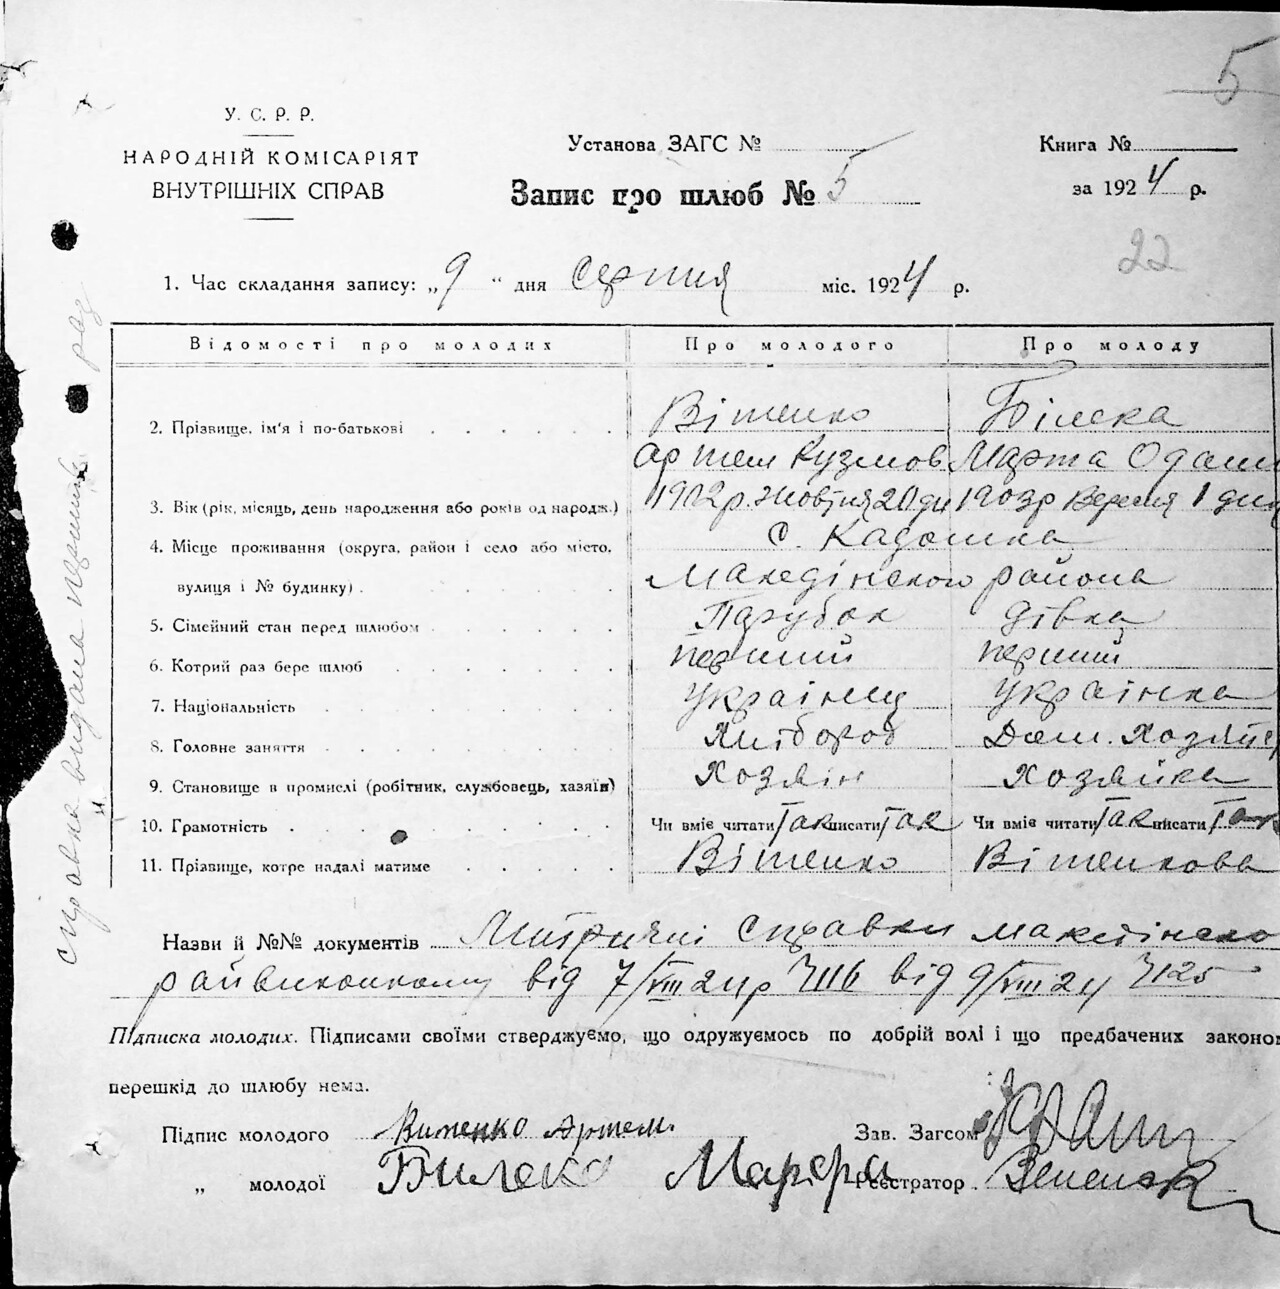 5
У. С. Р. Р.
НАРОДНІЙ КОМІСАРІЯТ
ВНУТРІШНІХ СПРАВ
Установа ЗАГС №
Запис про шлюб № 5
Книга №
за 1924 р.
22
1. Час складання запису: „9“ дня серпня міс. 1924 р.
Відомості про молодих Про молодого Про молоду
2. Прізвище, ім'я і по-батькові Вітенко Білека
Артем Кузмов Марта Одам
3. Вік (рік, місяць, день народження або років од народж.) 1902 р. Жовтня 20 дн 1903 р Вересня 1 дня
4. Місце проживання (округа, район і село або місто, с. Кадошка
вулиця і № будинку) района
5. Сімейний стан перед шлюбом Парубок дівка
6. Котрий раз бере шлюб перший перший
7. Національність Українец Українка
8. Головне заняття Хлібороб Дом. Хозяйс
9. Становище в промислі (робітник, службовець, хазяїн) Хозяін Хозяйка
10. Грамотність Чи вміє читати Так писати Так Чи вміє читати Так писати Так
11. Прізвище, котре надалі матиме Вітенко Вітенкова
Назви й №№ документів Метричні справки
райвиконкому від 7/VIII 24 р №116 від 9/VIII 24 №125
Підписка молодих. Підписами своїми стверджуємо, що одружуємось по добрій волі і що предбачених законо
перешкід до шлюбу нема.
Підпис молодого Витенко Артем Зав. Загсом
„ молодої Билека Реєстратор
справка видана